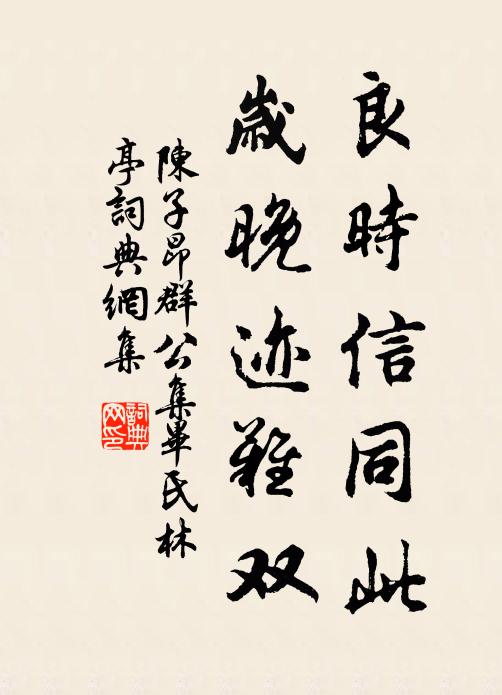 良時信同此
歲晚迹難双
陳子昂群公集畢氏林
亭詞典網集
詞典網印